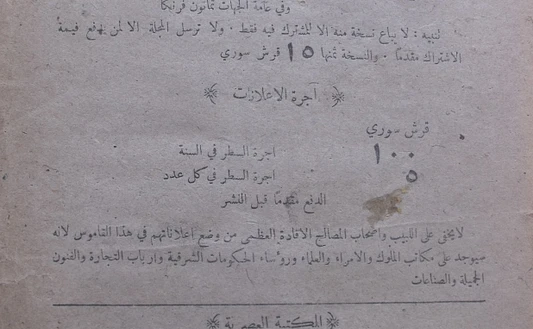 وفي عامة الجهات ثمانون فرنكا
تنبيه : لا يباع نسخة منه الا للمشترك فيه فقط ٠ ولا ترسل المجلة الا لمن يدفع قيمة
الاشتراك مقدمًا ٠ والنسخة ثمنها ١٥ قرش سوري
آجرة الاعلانات
قرش سوري
اجرة السطر في السنة ١٠٠
اجرة السطر في كل عدد ٥
الدفع مقدمًا قبل النشر
لايخفى على اللبيب واصحاب المصالح الافادة العظمى من وضع اعلاناتهم في هذا القاموس لانه
سيوجد على مكاتب الملوك والامراء والعلماء وروءساء الحكومات الشرقية وارباب التجارة والفنون
الجميلة والصناعات
المكتبة العصرية